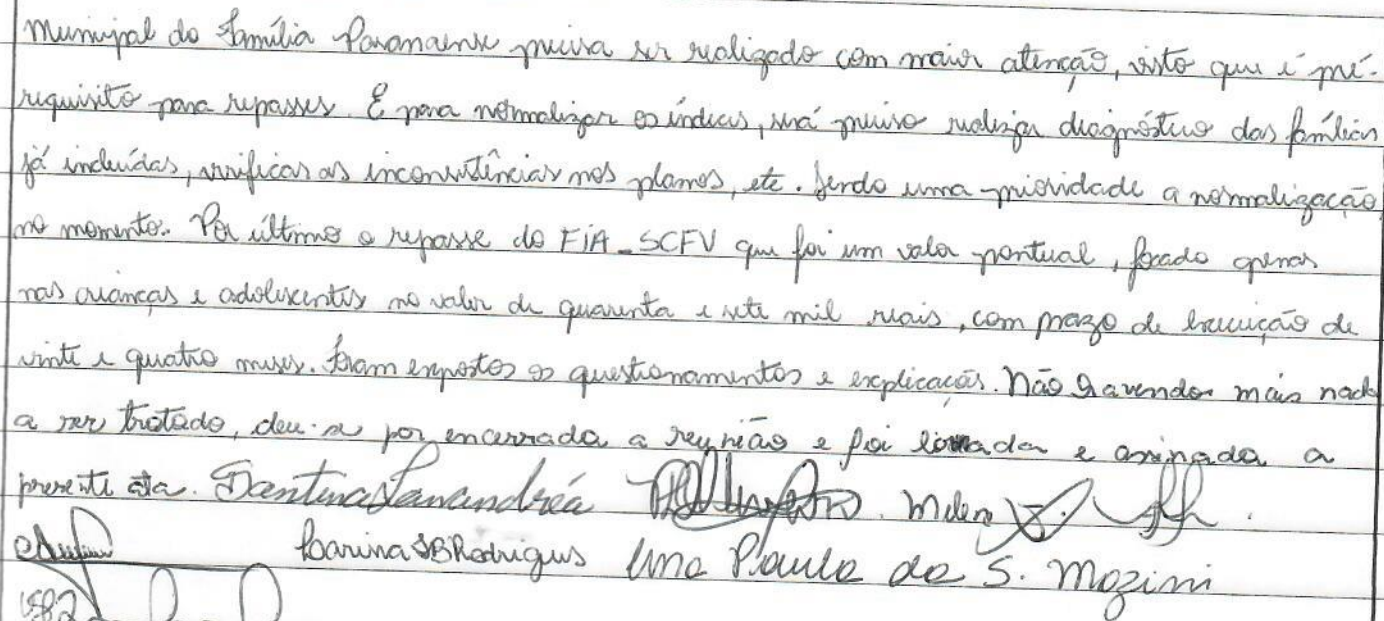 municipal do Família Paranaense precisa ser realizado com maior atenção, visto que é pré-
requisito para repasses. E para normalizar os índices, será preciso realizar diagnóstico das famílias
já incluídas, verificar as inconsistências nos planos, etc. Sendo uma prioridade a normalização
no momento. Por último o repasse do FIA_SCFV que foi um valor pontual, focado apenas
nas crianças e adolescentes no valor de quarenta e sete mil reais, com prazo de execução de
vinte e quatro meses. Foram expostos os questionamentos e explicações. Não havendo mais nada
a ser tratado, deu-se por encerrada a reunião e foi lavrada e assinada a
presente ata.
SBRodrigues Ana Paula da S. Mozini